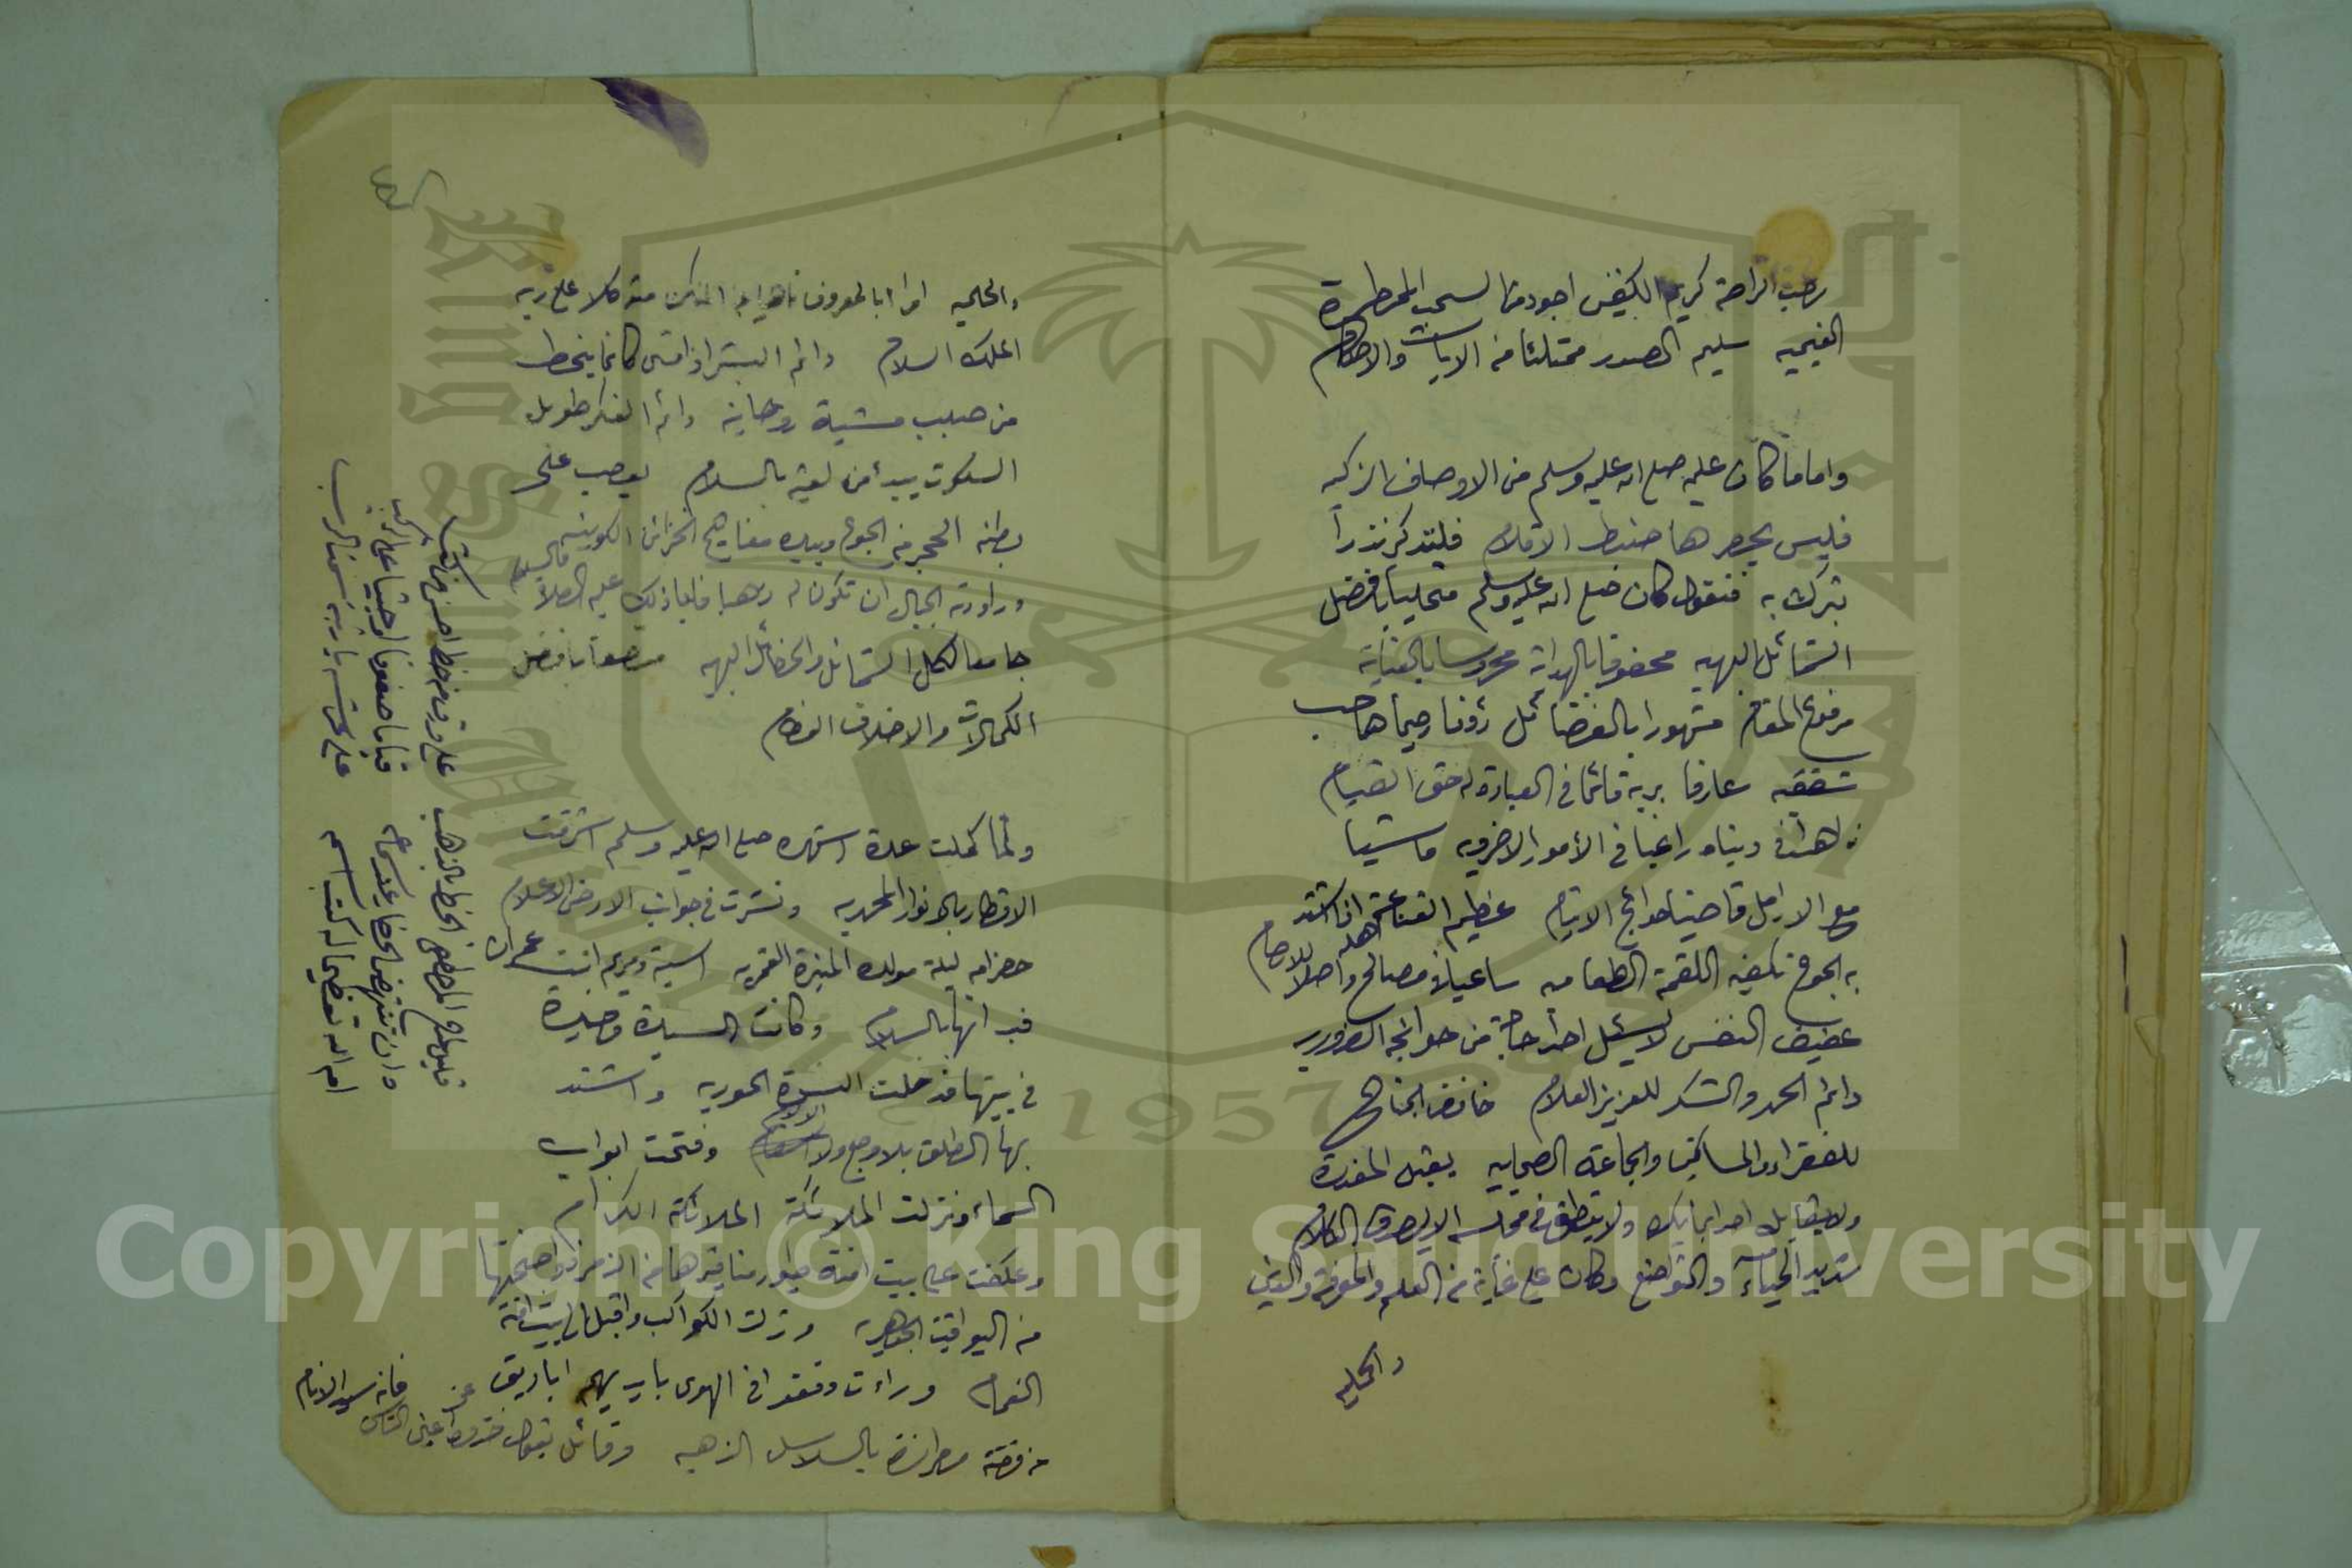 رحب الراحة كريم الكفين اجود من السحب الممطرة
الغيميه سليم الصدر ممتلئا من الايات والاحكام
واما ما كان عليه صلى الله عليه وسلم من الاوصاف الزكيه
فليس يحصرها ضبط الاقلام فلنذكر نذرا
نتبرك به فنقول كان صلى الله عليه وسلم متحليا بافضل
الشمائل البهيه محفوفا بالهداية محروسا بالعناية
مرفوع المقام مشهورا بالفضائل رؤفا رحيما صاحب
شفقه عارفا بربه قائما في العبادة له حق القيام
زاهدا في دنياه راغبا في الأمور الاخرويه ماشيا
مع الارامل قاضيا حوائج الايتام عظيم القناعة اذا اشتد
به الجوع تكفيه اللقمة الطعاميه ساعيا في مصالح اهله واصلا للارحام
عفيف النفس لا يسئل احدا حاجة من حوائجه الضروريه
دائم الحمد والشكر للعزيز العلام خافض الجناح
للفقراء والمساكين والجماعة الصحابيه يقبل المعذرة
ولا يقابل احدا بما يكره ولا ينطق في مجلسه الا بصدق الكلام
شديد الحياء والتواضع وكان على غاية من العلم والمعرفة واليقين
والحلميه
والحلميه امرا بالمعروف ناهيا عن المنكر متوكلا على ربه
الملك السلام دائم البشر اذا مشى كانما ينحط
من صبب مشية روحانيه دائم الفكر طويل
السكوت يبدأ من لقيه بالسلام يعصب على
بطنه الحجر من الجوع وبيده مفاتيح الخزائن الكونيه
وراودته الجبال ان تكون له ذهبا فابا ذلك عليه الصلاة والسلام
جامعا لكل الشمائل والخصائل البهيه متصفا بافضل
الكمالات والاخلاق العظام
ولما كملت عدة اشهره صلى الله عليه وسلم اشرقت
الاقطار بالانوار المحمديه ونشرت في جوانب الارض الاعلام
حضر امه ليلة مولده المنيرة القمريه اسية ومريم ابنت عمران
فبدأنها بالسلام وكانت السيدة وحيدة
في بيتها فدخلت النسوة الحوريه واشتد
بها الطلق بلا وجع ولا الام وفتحت ابواب
السماء ونزلت الملائكة الملائكة الكرام
وعكفت على بيت امنة طيور مناقيرها من الزمرد واجنحتها
من اليواقيت الجوهريه ونزلت الكواكب واقبل الى بيت امنة
الغمام وراءت وقفوا في الهوى بايديهم اباريق
من فضة بالسلاسل الذهبيه وقائل يقول خذوه عن اعين الناس
فانه سيد الانام
قليل لمدح المصطفى الخط بالذهب على ورق من خط احسن من كتب
وان تنهض الاشراف عند سماعه قياما صفوفا او جثيا على الركب
اما الله تعظيما له كتب اسمه على عرشه يا رتبة سمت الرتب